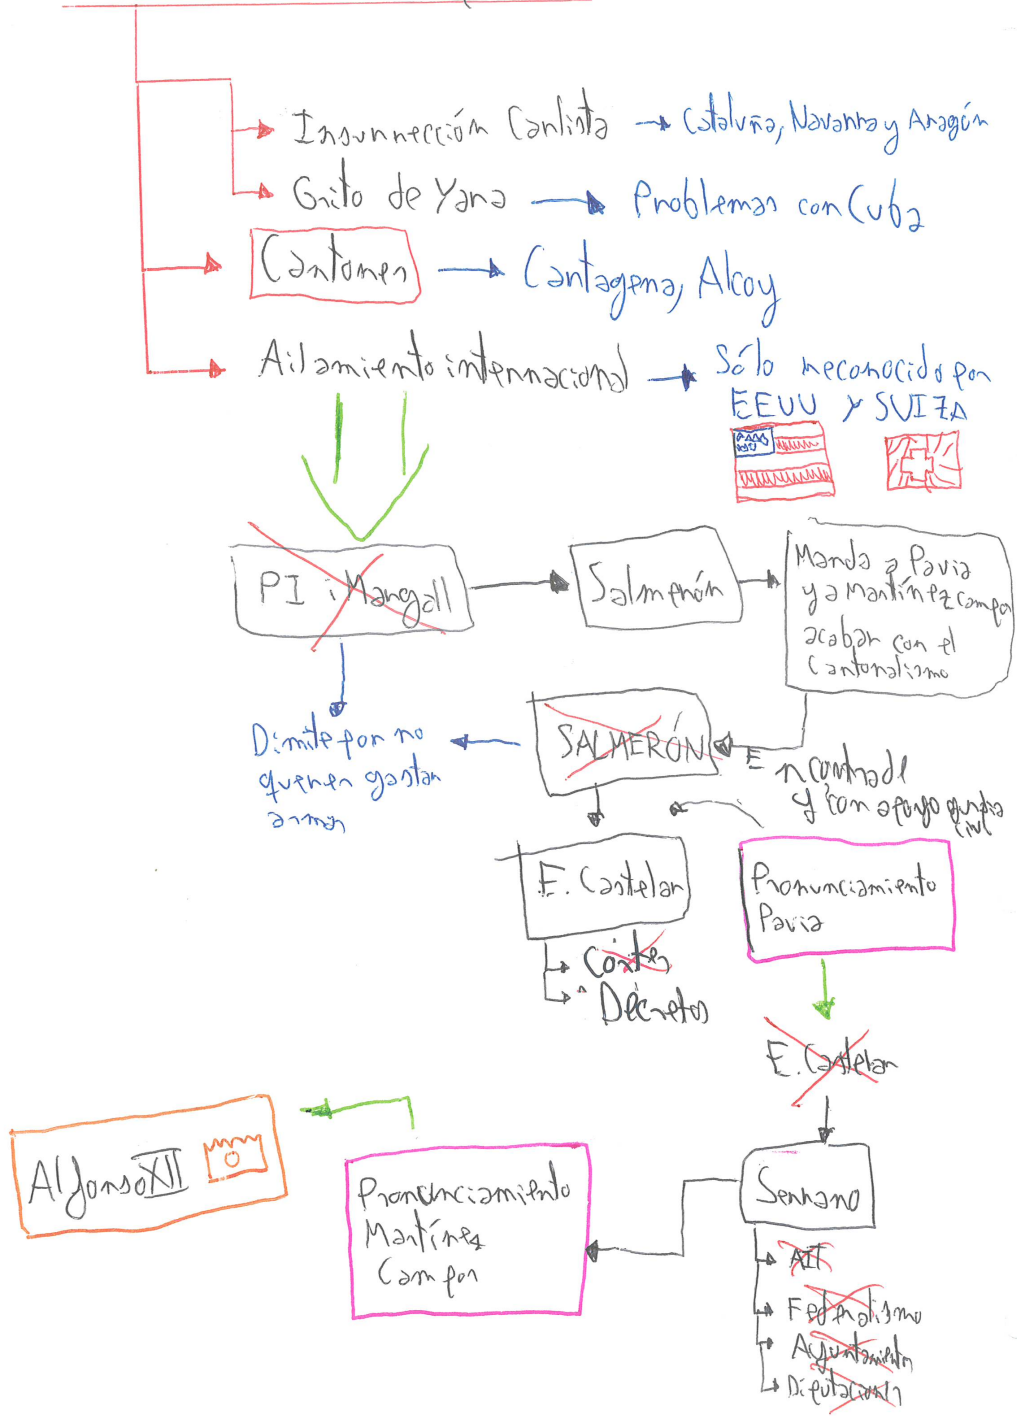 Insurrección Carlista → Cataluña, Navarra y Aragón
Grito de Yara → Problemas con Cuba
Cantones → Cartagena, Alcoy
Ailamiento internacional → Sólo reconocido por
EEUU y SUIZA
PI i Margall
Salmerón
Manda a Pavia
y a Martínez campos
acabar con el
Cantonalismo
SALMERÓN
Dimite por no
querer gastar
armas
E
y con apoyo guardia
civil
E. Castelar
Cortes
Décretos
Pronunciamiento
Pavia
E. Castelar
Serrano
AIT
Federalismo
Ayuntamientos
Diputación
Pronunciamiento
Martínez
Campos
Alfonso XII